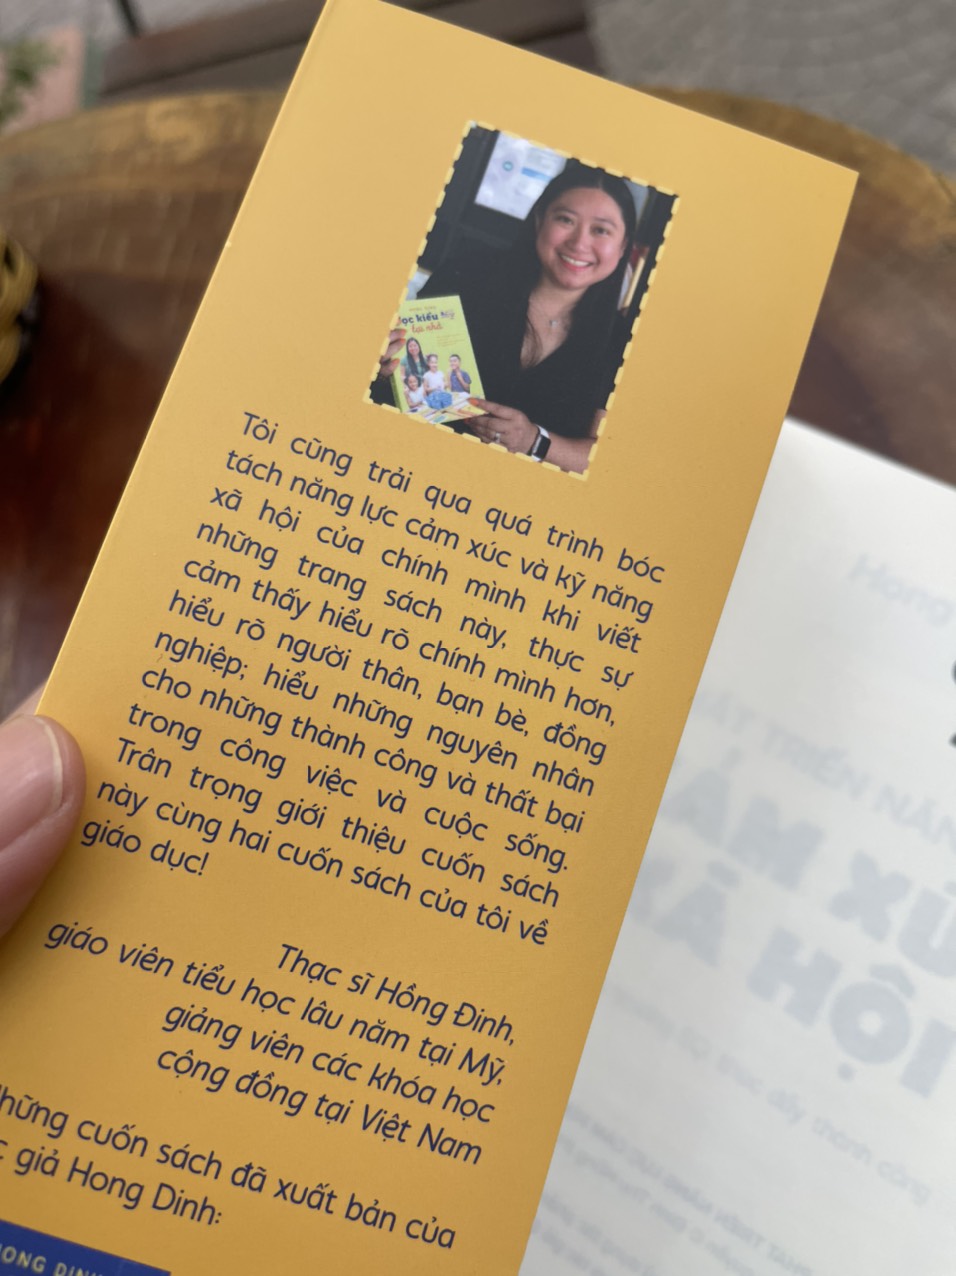 học kiểu Mỹ
tại nhà
Tôi cũng trải qua quá trình bóc
tách năng lực cảm xúc và kỹ năng
xã hội của chính mình khi viết
những trang sách này, thực sự
cảm thấy hiểu rõ chính mình hơn,
hiểu rõ người thân, bạn bè, đồng
nghiệp; hiểu những nguyên nhân
cho những thành công và thất bại
trong công việc và cuộc sống.
Trân trọng giới thiệu cuốn sách
này cùng hai cuốn sách của tôi về
giáo dục!
Thạc sĩ Hồng Đinh,
giáo viên tiểu học lâu năm tại Mỹ,
giảng viên các khóa học
cộng đồng tại Việt Nam
hững cuốn sách đã xuất bản của
c giả Hong Dinh:
HONG DINH